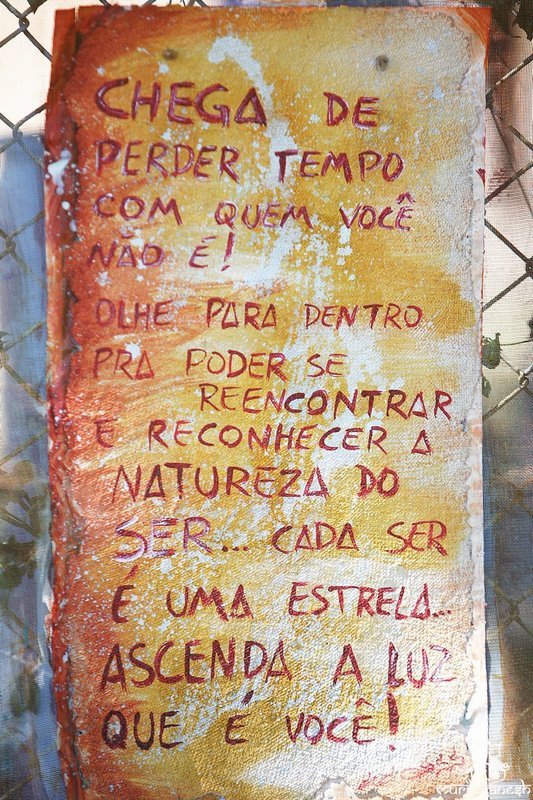 CHEGA DE
PERDER TEMPO
COM QUEM VOCÊ
NÃO É!
OLHE PARA DENTRO
PRA PODER SE
REENCONTRAR
E RECONHECER A
NATUREZA DO
SER... CADA SER
É UMA ESTRELA...
ASCENDA A LUZ
QUE É VOCÊ!